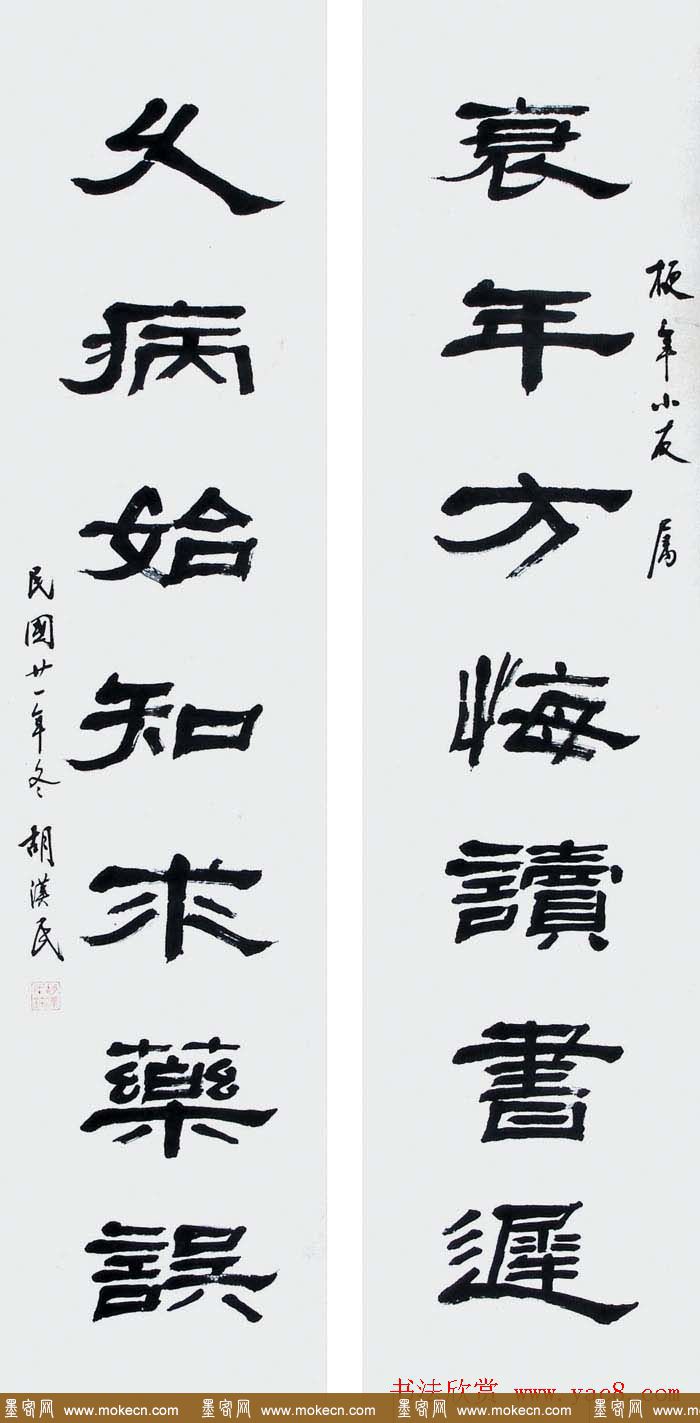 梗年小友 属
衰年方悔讀書遲
久病始知求藥誤
民國廿一年冬 胡漢民
书法欣赏 www.yac8.com
墨客网 www.mokecn.com 墨客网 www.mokecn.com 墨客网 www.mokecn.com 墨客网 www.mokecn.com